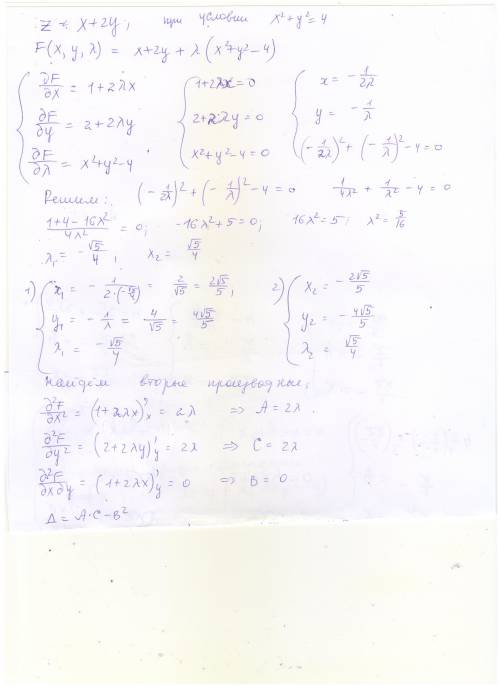 z = x+2y, при условии x²+y²=4
F(x, y, λ) = x+2y + λ(x²+y²-4)
{ ∂F/∂x = 1+2λx { 1+2λx=0 { x = -1/2λ
∂F/∂y = 2+2λy 2+2λy=0 y = -1/λ
∂F/∂λ = x²+y²-4 x²+y²-4=0 (-1/2λ)²+(-1/λ)²-4=0
Решим: (-1/2λ)²+(-1/λ)²-4=0 1/4λ²+1/λ²-4=0
1+4-16λ²/4λ² = 0; -16λ²+5=0; 16λ²=5; λ²=5/16
λ₁= -√5/4, x₂= √5/4
1) { x₁ = -1/2·(-√5/4) = 2/√5 = 2√5/5, 2) { x₂ = -2√5/5
y₁ = -1/λ = 4/√5 = 4√5/5 y₂ = -4√5/5
λ₁ = -√5/4 λ₂ = √5/4
Найдём вторые производные,
∂²F/∂x² = (1+2λx)'ₓ = 2λ ⇒ A=2λ.
∂²F/∂y² = (2+2λy)'y = 2λ ⇒ C=2λ
∂²F/∂x∂y = (1+2λx)'y = 0 ⇒ B=0
Δ=A·C-B²